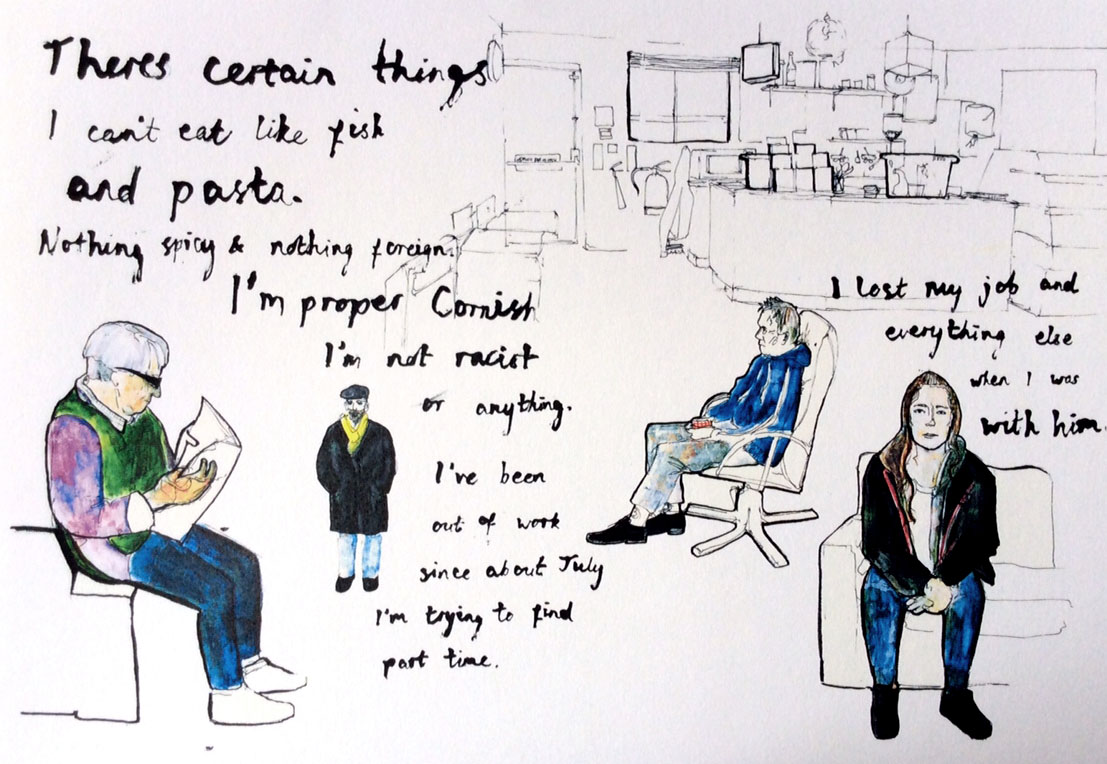 Theres certain things
I can't eat like fish
and pasta.
Nothing spicy & nothing foreign.
I'm proper Cornish
I'm not racist
or anything.
I've been
out of work
since about July
I'm trying to find
part time.
I lost my job and
everything else
when I was
with him.